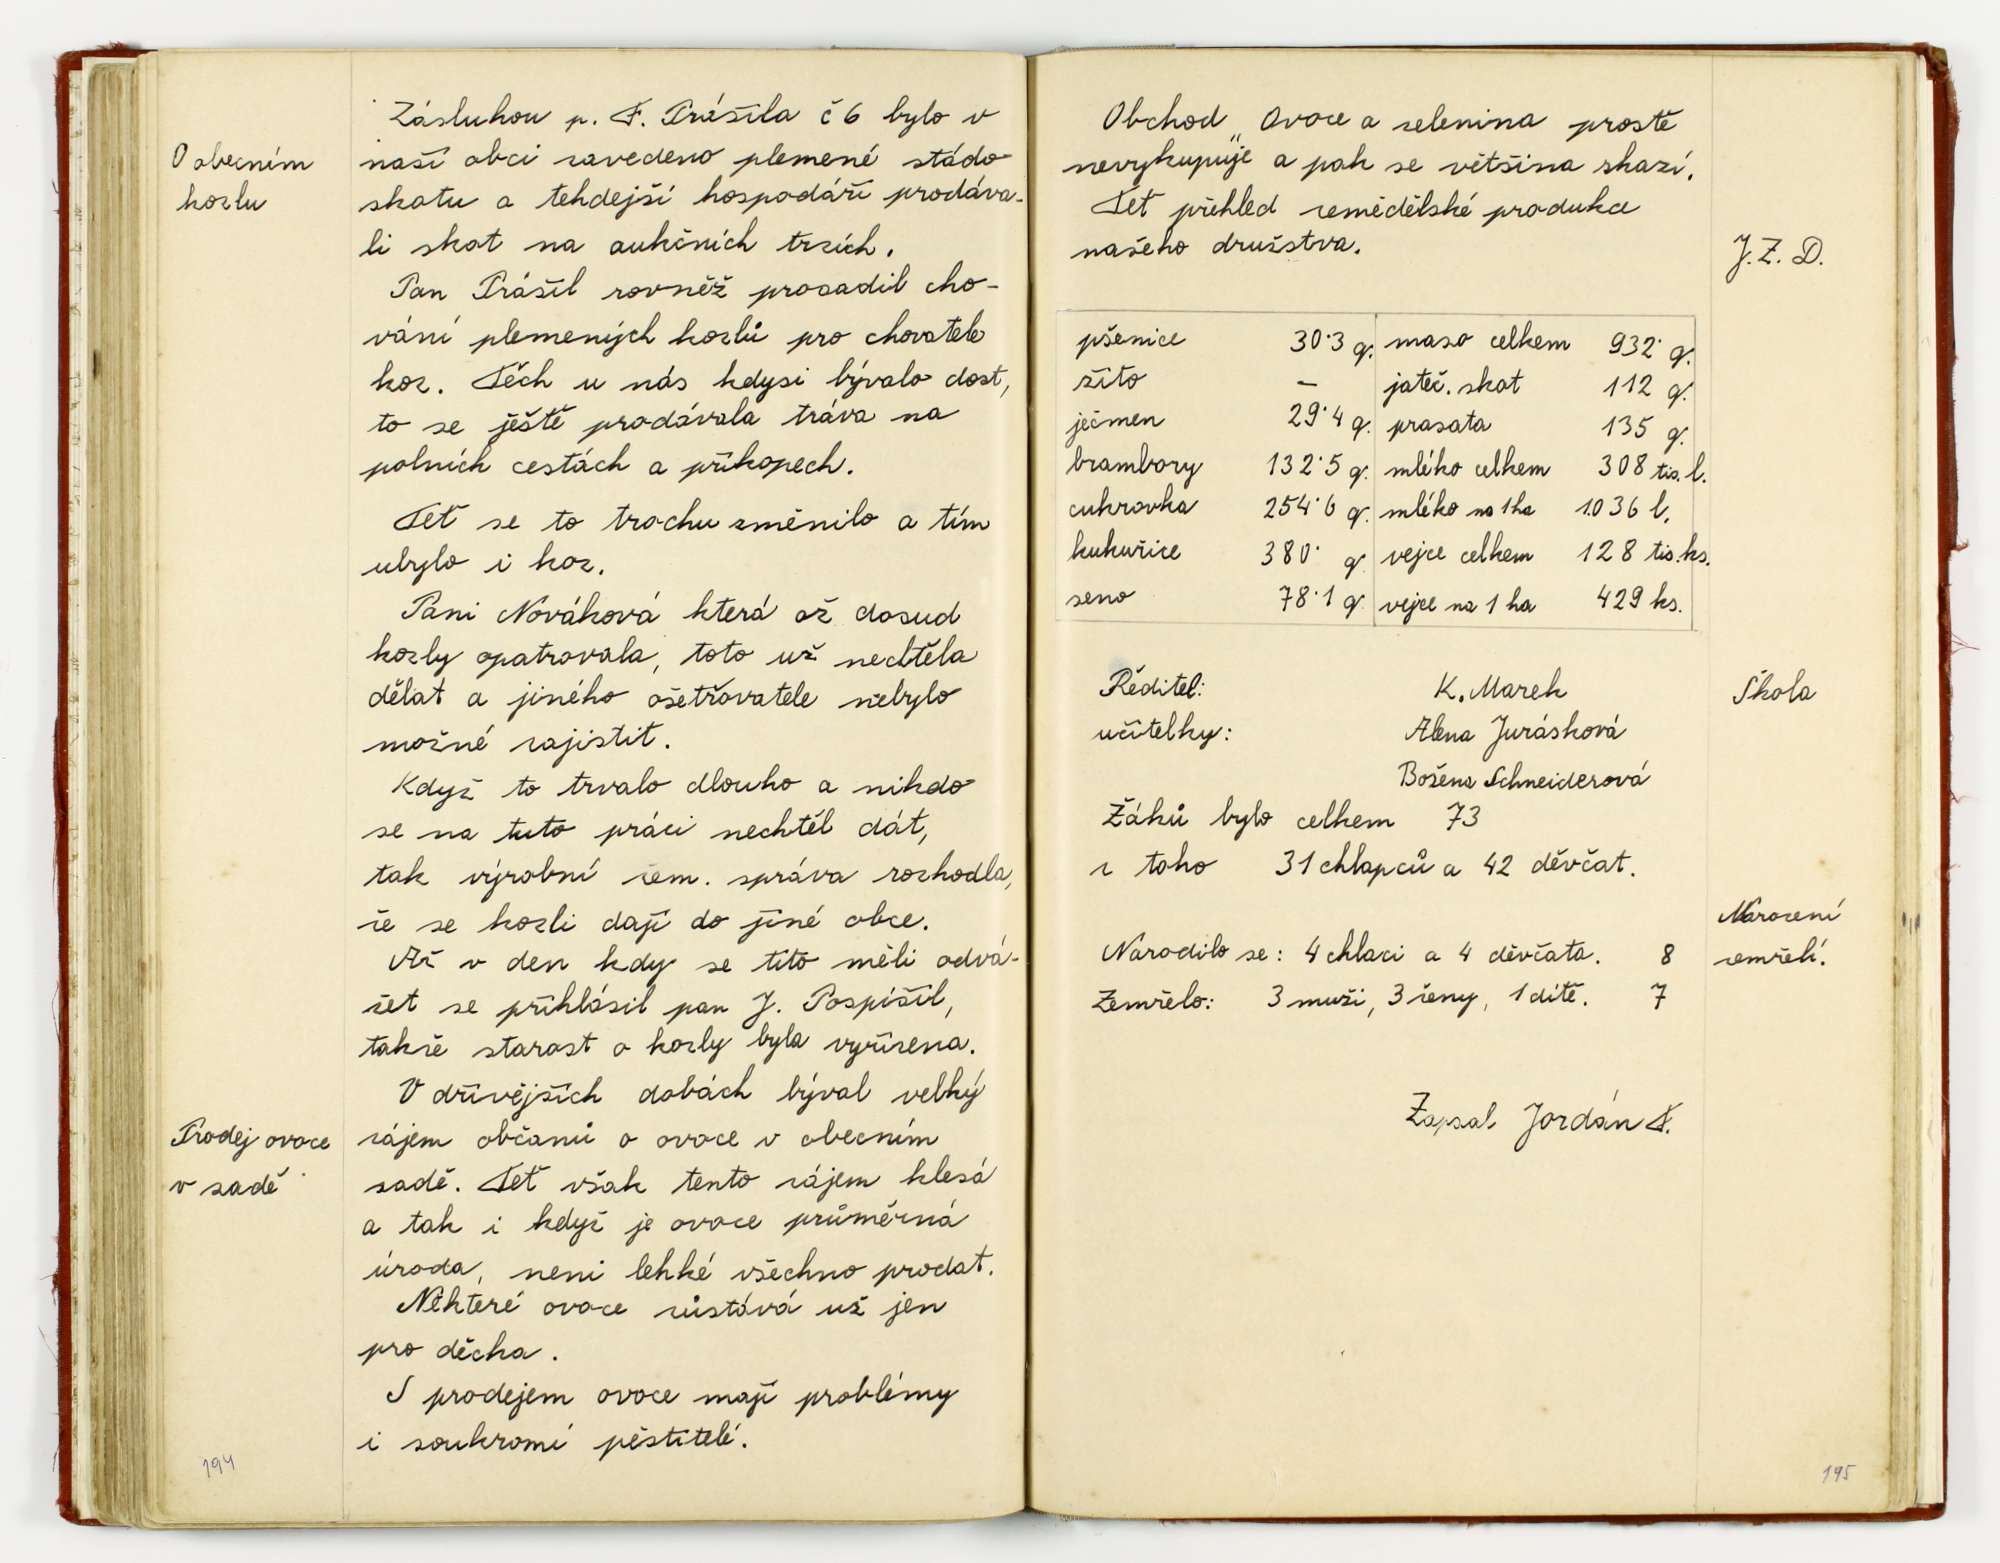 O obecním
kozlu
Zásluhou p. F. Prášila č 6 bylo v
naší obci zavedeno plemené stádo
skotu a tehdejší hospodáři prodáva-
li skot na aukčních trzích.
Pan Prášil rovněž prosadil cho-
vání plemených kozlů pro chovatele
koz. Těch u nás kdysi bývalo dost,
to se ještě prodávala tráva na
polních cestách a příkopech.
Teť se to trochu změnilo a tím
ubylo i koz.
Paní Nováková která až dosud
kozly opatrovala, toto už nechtěla
dělat a jiného ošetřovatele nebylo
možné zajistit.
Když to trvalo dlouho a nikdo
se na tuto práci nechtěl dát,
tak výrobní zem. správa rozhodla,
že se kozli dají do jiné obce.
Až v den kdy se tito měli odvá-
žet se přihlásil pan J. Pospíšil,
takže starost o kozly byla vyřízena.
Prodej ovoce
v sadě
V dřívějších dobách býval velký
zájem občanů o ovoce v obecním
sadě. Teť však tento zájem klesá
a tak i když je ovoce průměrná
úroda, neni lehké všechno prodat.
Některé ovoce zůstává už jen
pro děcka.
S prodejem ovoce mají problémy
i soukromí pěstitelé.
194
Obchod „Ovoce a zelenina prostě
nevykupuje a pak se většina zkazí.
Teť přehled zemědělské produkce
našeho družstva.
J. Z. D.
pšenice 30·3 q. maso celkem 932· q.
žito — jateč. skot 112 q.
ječmen 29·4 q. prasata 135 q.
brambory 132·5 q. mléko celkem 308 tis. l.
cukrovka 254·6 q. mléko na 1 ha 1.036 l.
kukuřice 380· q. vejce celkem 128 tis. ks.
seno 78·1 q. vejce na 1 ha 429 ks.
Škola
Ředitel: K. Marek
učitelky: Alena Jurásková
Božena Schneiderová
Žáků bylo celkem 73
z toho 31 chlapců a 42 děvčat.
Narození
zemřelí.
Narodilo se: 4 chlaci a 4 děvčata. 8
Zemřelo: 3 muži, 3 ženy, 1 dítě. 7
Zapsal Jordán F.
195